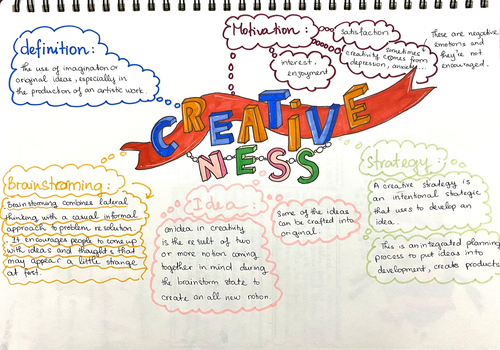 definition:
The use of imagination or
original ideas, especially in
the production of an artistic work.
Motivation:
satisfaction
interest,
enjoyment
sometimes
creativity comes from
depression, anxiety...
These are negative
emotions and
they're not
encouraged.
CREATIVE
NESS
Brainstroming:
Brainstorming combines lateral
thinking with a casual informal
approach to problems resolution.
It encourages people to come up
with ideas and thoughts that
may appear a little strange
at first.
Idea:
an idea in creativity
is the result of two
or more notion coming
together in mind during
the brainstorm state to
create an all new notion.
Some of the ideas
can be crafted into
original
Strategy:
A creative strategy is
an intentional strategic
that uses to develop an
idea.
This is an integrated planning
process to put ideas into
development, create products